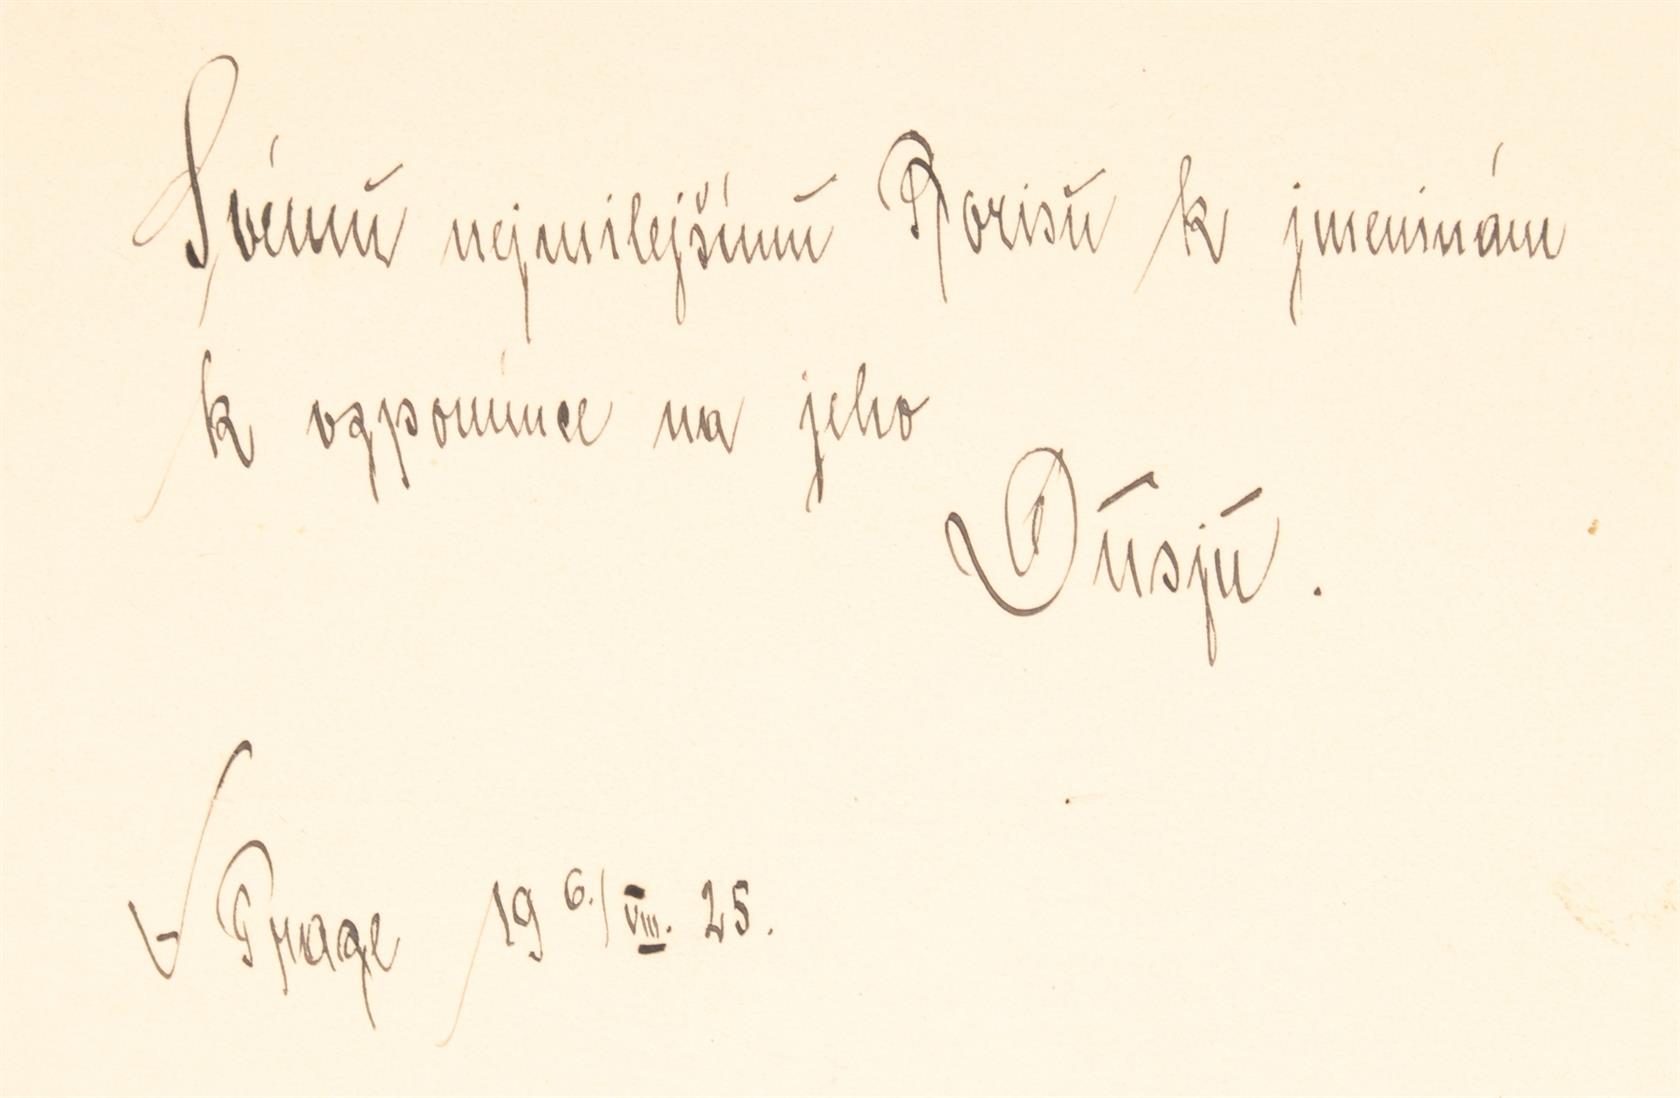 Svému nejmilejšímu Borisu k jmeninám
k vzpomínce na jeho
Dusju.
V Praze 19 6./VIII. 25.